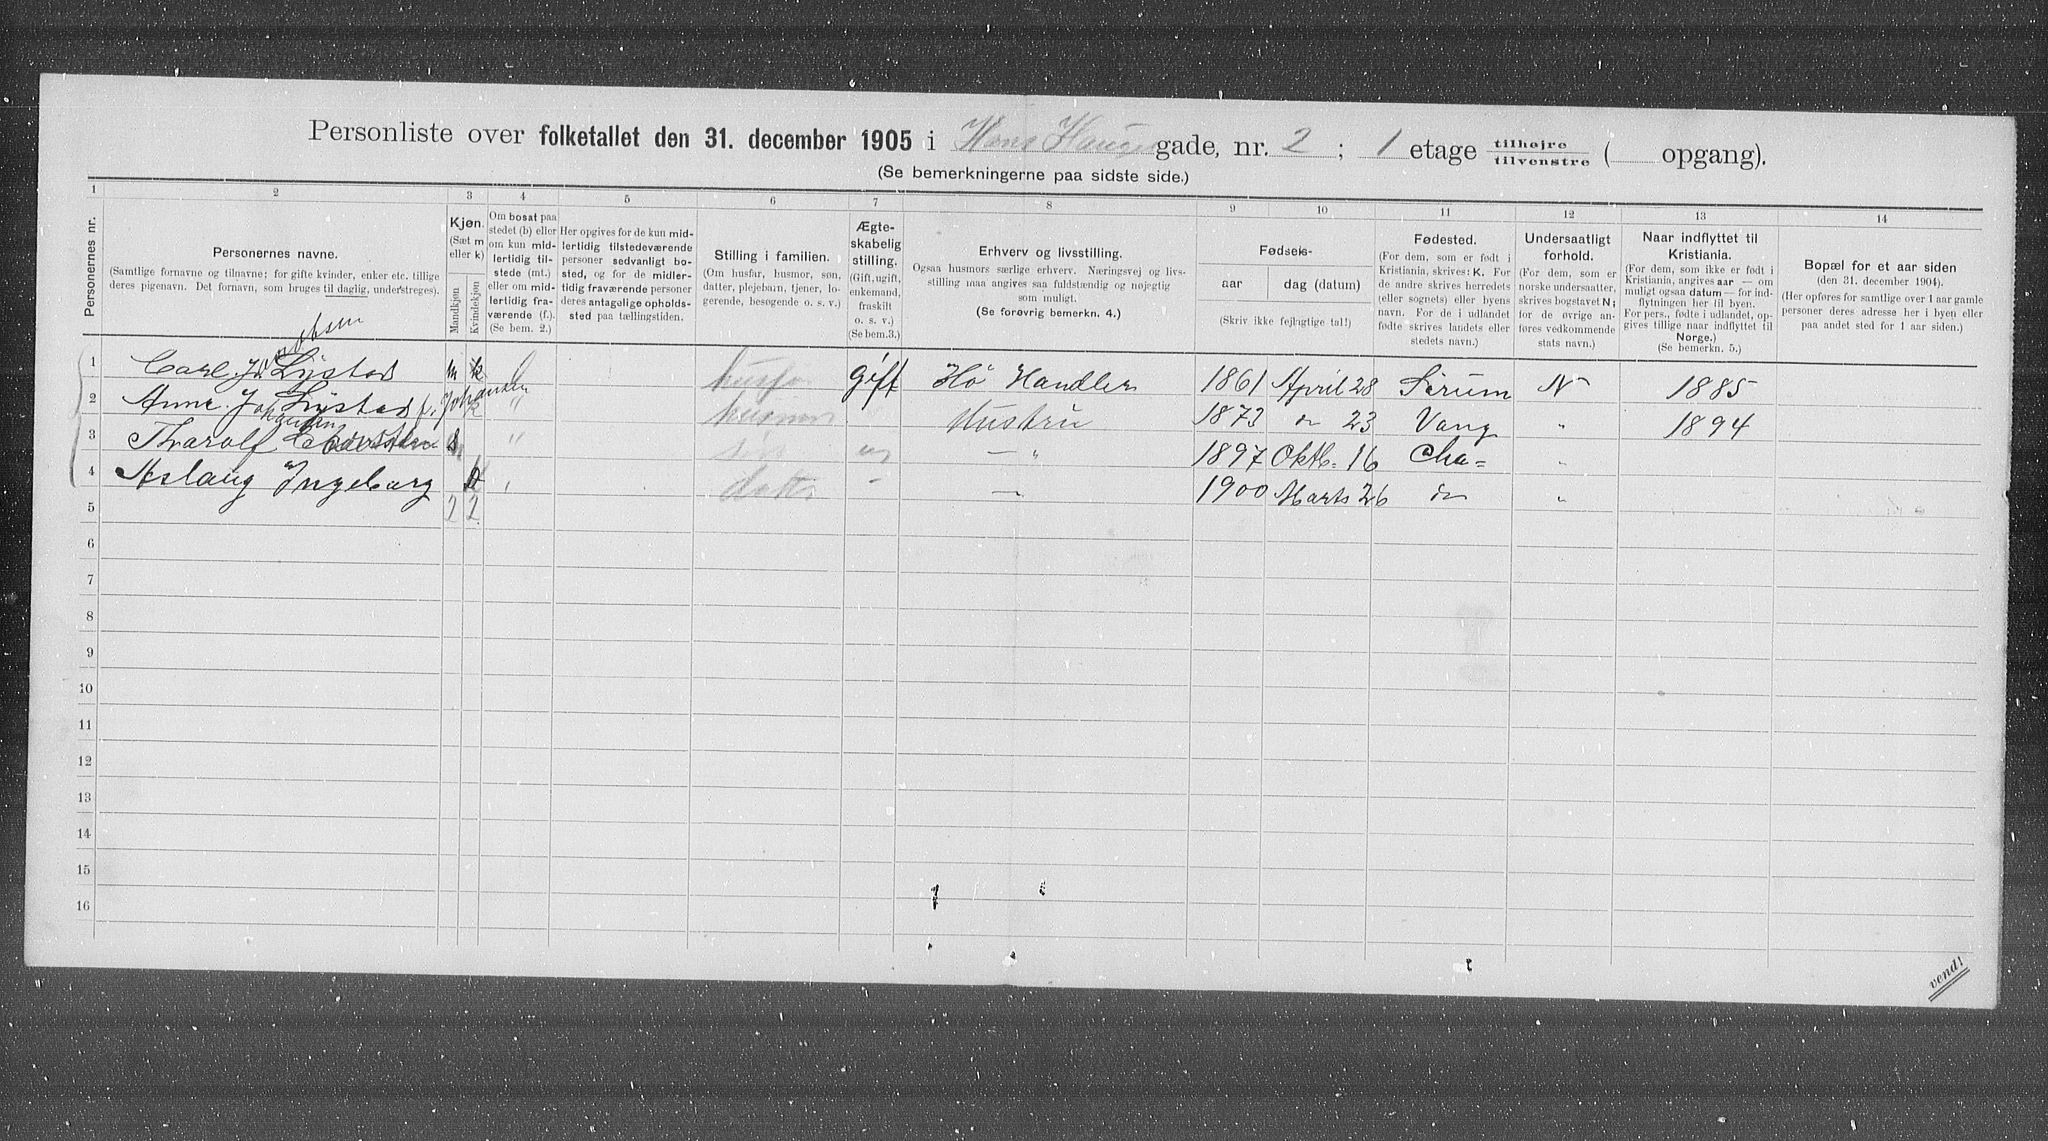 Personliste over folketallet den 31. december 1905 i Hans Hauges gade, nr. 2 ; 1 etage tilhøjre / tilvenstre ( opgang).
(Se bemerkningerne paa sidste side.)
1 2 3 4 5 6 7 8 9 10 11 12 13 14
Personernes nr.
Personernes navne.
(Samtlige fornavne og tilnavne; for gifte kvinder, enker etc. tillige
deres pigenavn. Det fornavn, som bruges til daglig, understreges).
Kjøn.
(Sæt m
eller k)
Mandkjøn
Kvindekjøn
Om bosat paa
stedet (b) eller
om kun mid-
lertidig til-
stede (mt.)
eller om mid-
lertidig fra-
værende (f.).
(Se bem. 2.)
Her opgives for de kun mid-
lertidig tilstedeværende
personer sedvanlig bo-
sted, og for de midler-
tidig fraværende personer
deres antagelige opholds-
sted paa tællingstiden.
Stilling i familien.
(Om husfar, husmor, søn,
datter, plejebarn, tjener, lo-
gerende, besøgende o. s. v.)
Ægte-
skabelig
stilling.
(Gift, ugift,
enkemand,
fraskilt
o. s. v.)
(Se bem.3.)
Erhverv og livsstilling.
Ogsaa husmors særlige erhverv. Næringsvej og livs-
stilling maa angives saa fuldstændig og nøjegtig
som muligt.
(Se forøvrig bemerkn. 4.)
Fødsels-
aar
dag (datum)
(Skriv ikke fejlagtige tal!)
Fødested.
(For dem, som er født i
Kristiania, skrives: K. For
de andre skrives herredets
(eller sognets) eller byens
navn. For de i udlandet
fødte skrives landets eller
stedets navn.)
Undersaatligt
forhold.
(For dem, som er
norske undersaatter,
skrives bogstavet N;
for de øvrige an-
føres vedkommende
stats navn.)
Naar indflyttet til
Kristiania.
(For dem, som ikke er født i
Kristiania, angives aar — om
muligt ogsaa datum — for ind-
flytningen her til byen.
For pers., fødte i udlandet, op-
gives tillige naar indflyttet til
Norge.)
(Se bemerkn. 5.)
Bopæl for et aar siden
(den 31. december 1904).
(Her opføres for samtlige over 1 aar gamle
personer deres adresse her i byen eller
paa andet sted for 1 aar siden.)
1 Carl Lystad m b husfa gift Hø Handler 1861 April 28 Sørum N 1885
2 Anne Joh Lystad f. Johansen k " husmor Hustru 1873 do 23 Vang " 1894
3 Tharolf m " søn ug — " 1897 Oktb. 16 Cha= "
4 Aslaug Ingeborg " datter - — 1900 Marts 26 do "
5 2 2
6
7
8
9
10
11
12
13
14
15
16
vend!